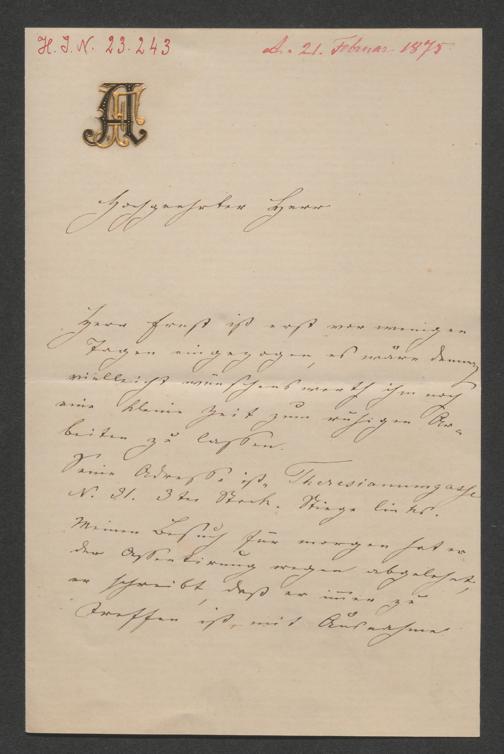 H. I. N. 23.243
A. 21. Februar 1875
Hochgeehrter Herr
Herr Ernst ist erst vor wenigen
Tagen eingezogen, es wäre demnach
vielleicht wünschenswerth ihm noch
eine kleine Zeit zum ruhigen Ar-
beiten zu lassen.
Seine Adresse ist, Theresianumgasse
N. 31. 3ter Stock. Stiege links.
Meinen Besuch für morgen hat er
der Assentirung wegen abgelehnt,
er schreibt, daß er immer zu
treffen ist, mit Ausnahme